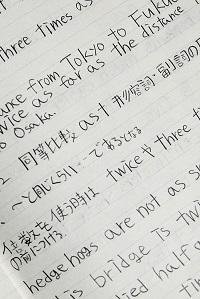 three times as
ance from Tokyo to Fukuo
twice as far as the distance
to Osaka.
2 同等比較 as+形容詞・副詞の原
〜と同じくらい…である[となる
倍数を使う時は twiceや three t
の前につける。
hedgehogs are not as s
s bridge is twi
ied half